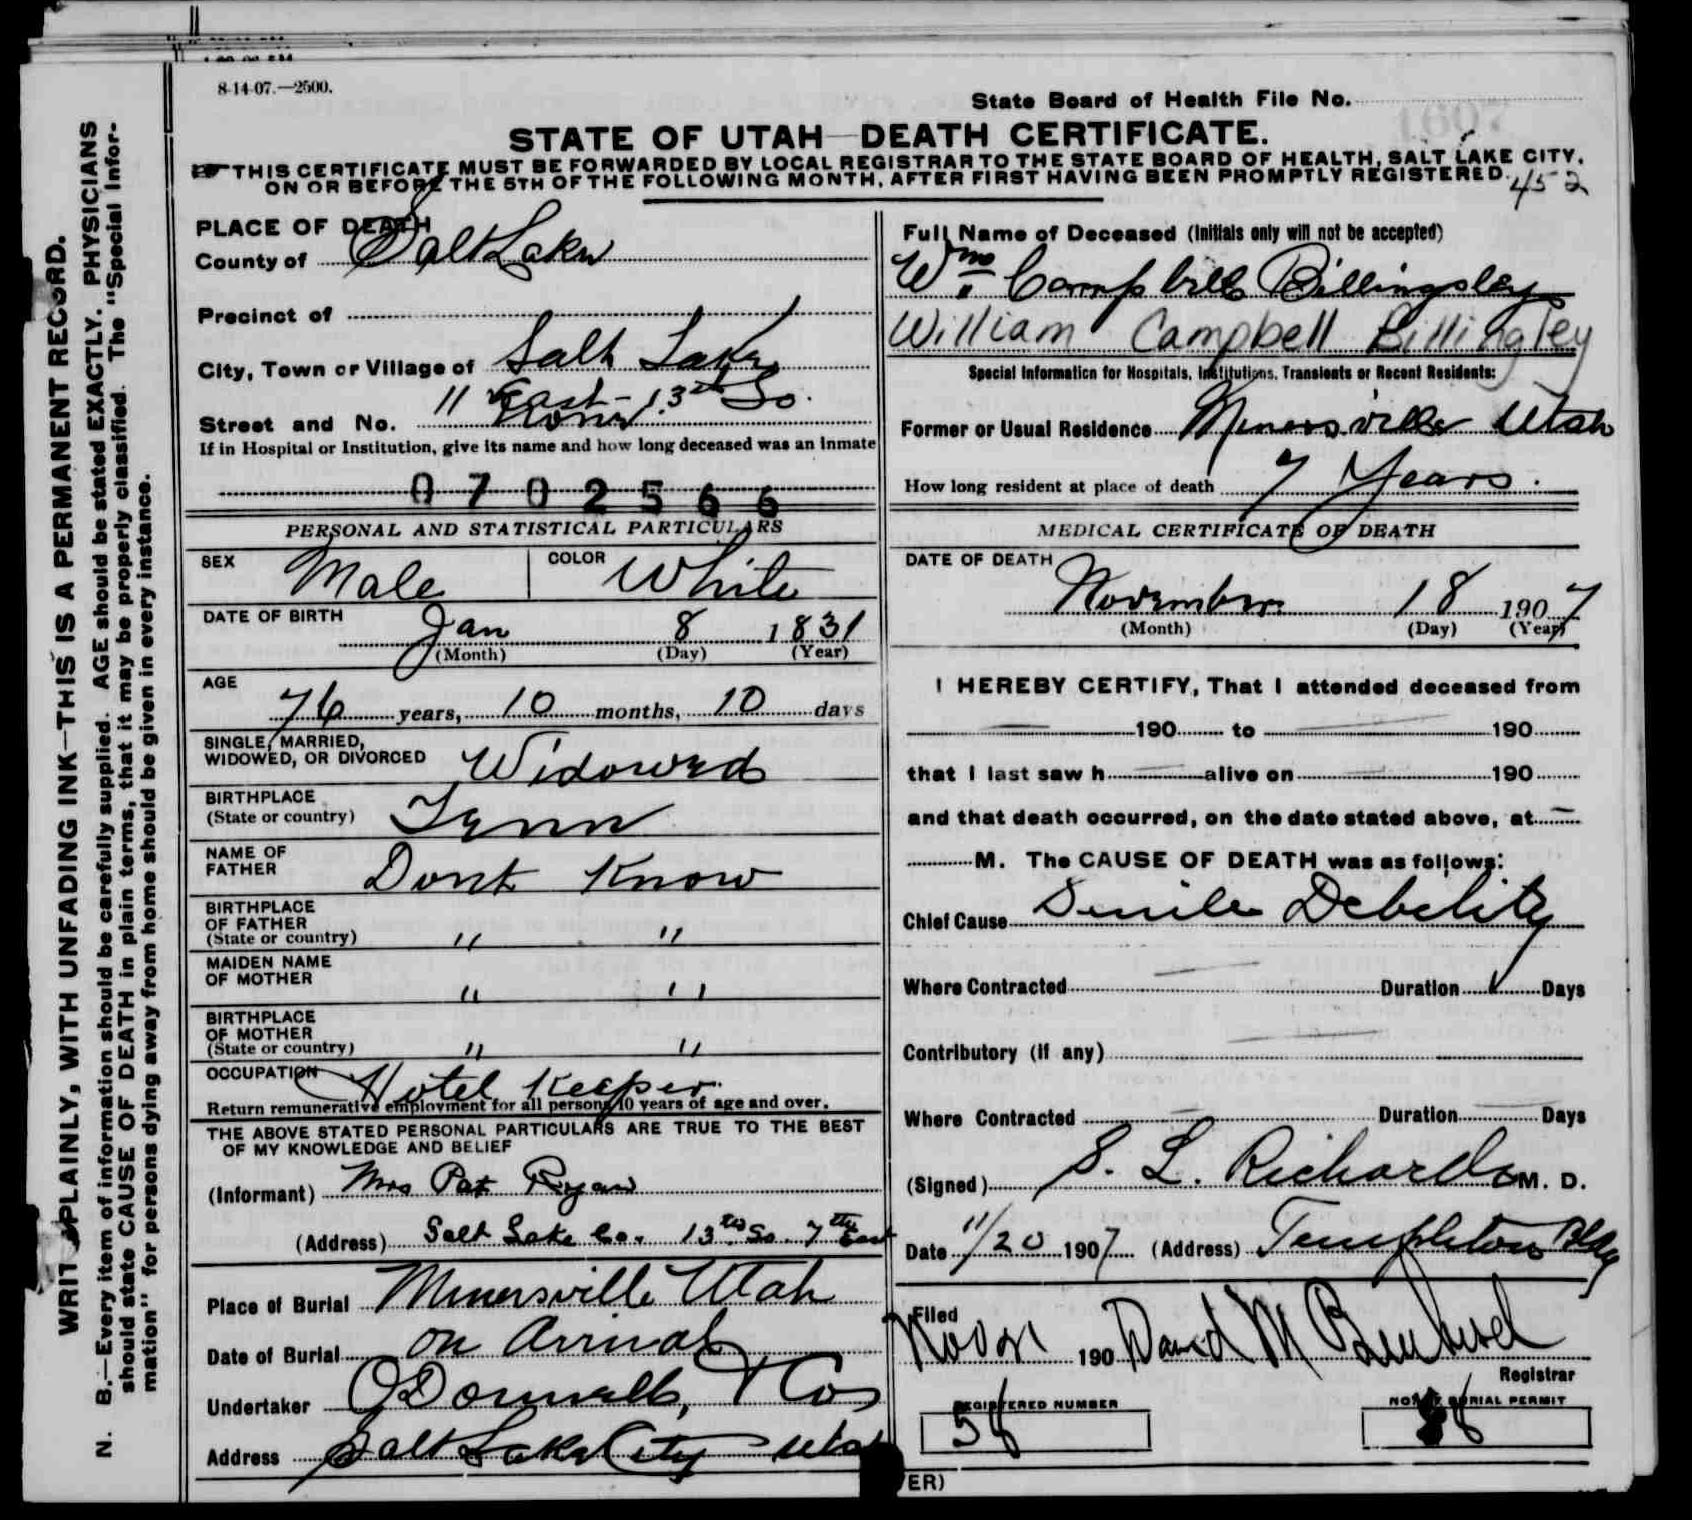 8-14-07.—2500.
State Board of Health File No.
1607
STATE OF UTAH—DEATH CERTIFICATE.
THIS CERTIFICATE MUST BE FORWARDED BY LOCAL REGISTRAR TO THE STATE BOARD OF HEALTH, SALT LAKE CITY,
ON OR BEFORE THE 5TH OF THE FOLLOWING MONTH, AFTER FIRST HAVING BEEN PROMPTLY REGISTERED.
452
WRIT PLAINLY, WITH UNFADING INK—THIS IS A PERMANENT RECORD.
N. B.—Every item of information should be carefully supplied. AGE should be stated EXACTLY. PHYSICIANS
should state CAUSE OF DEATH in plain terms, that it may be properly classified. The "Special Infor-
mation" for persons dying away from home should be given in every instance.
PLACE OF DEATH
County of Salt Lake
Precinct of
City, Town or Village of Salt Lake
Street and No. 11 East 13th So.
If in Hospital or Institution, give its name and how long deceased was an Inmate
0702566
PERSONAL AND STATISTICAL PARTICULARS
SEX Male COLOR White
DATE OF BIRTH Jan 8 1831
(Month) (Day) (Year)
AGE
76 years, 10 months, 10 days
SINGLE, MARRIED,
WIDOWED, OR DIVORCED Widowed
BIRTHPLACE
(State or country) Tenn
NAME OF
FATHER Dont Know
BIRTHPLACE
OF FATHER
(State or country) " "
MAIDEN NAME
OF MOTHER " "
BIRTHPLACE
OF MOTHER
(State or country) " "
OCCUPATION Hotel Keeper
Return remunerative employment for all persons 10 years of age and over.
THE ABOVE STATED PERSONAL PARTICULARS ARE TRUE TO THE BEST
OF MY KNOWLEDGE AND BELIEF
(Informant) Mrs Pat Ryan
(Address) Salt Lake Co. 13th So. 7th East
Place of Burial Minersville Utah
Date of Burial on Arrival
Undertaker O'Donnell, & Co
Address Salt Lake City Utah
Full Name of Deceased (Initials only will not be accepted)
Wm. Campbell Billingsley
William Campbell Billingley
Special Information for Hospitals, Institutions, Transients or Recent Residents:
Former or Usual Residence Minersville Utah
How long resident at place of death 7 Years.
MEDICAL CERTIFICATE OF DEATH
DATE OF DEATH
November 18 1907
(Month) (Day) (Year)
I HEREBY CERTIFY, That I attended deceased from
190 to 190
that I last saw h alive on 190
and that death occurred, on the date stated above, at
M. The CAUSE OF DEATH was as follows:
Chief Cause Senile Debelity
Where Contracted Duration Days
Contributory (if any)
Where Contracted Duration Days
(Signed) S. L. Richards M. D.
Date 11/20 1907 (Address) Templeton Bldg
Filed
190 David M
Registrar
REGISTERED NUMBER
NO. OF BURIAL PERMIT
ER)